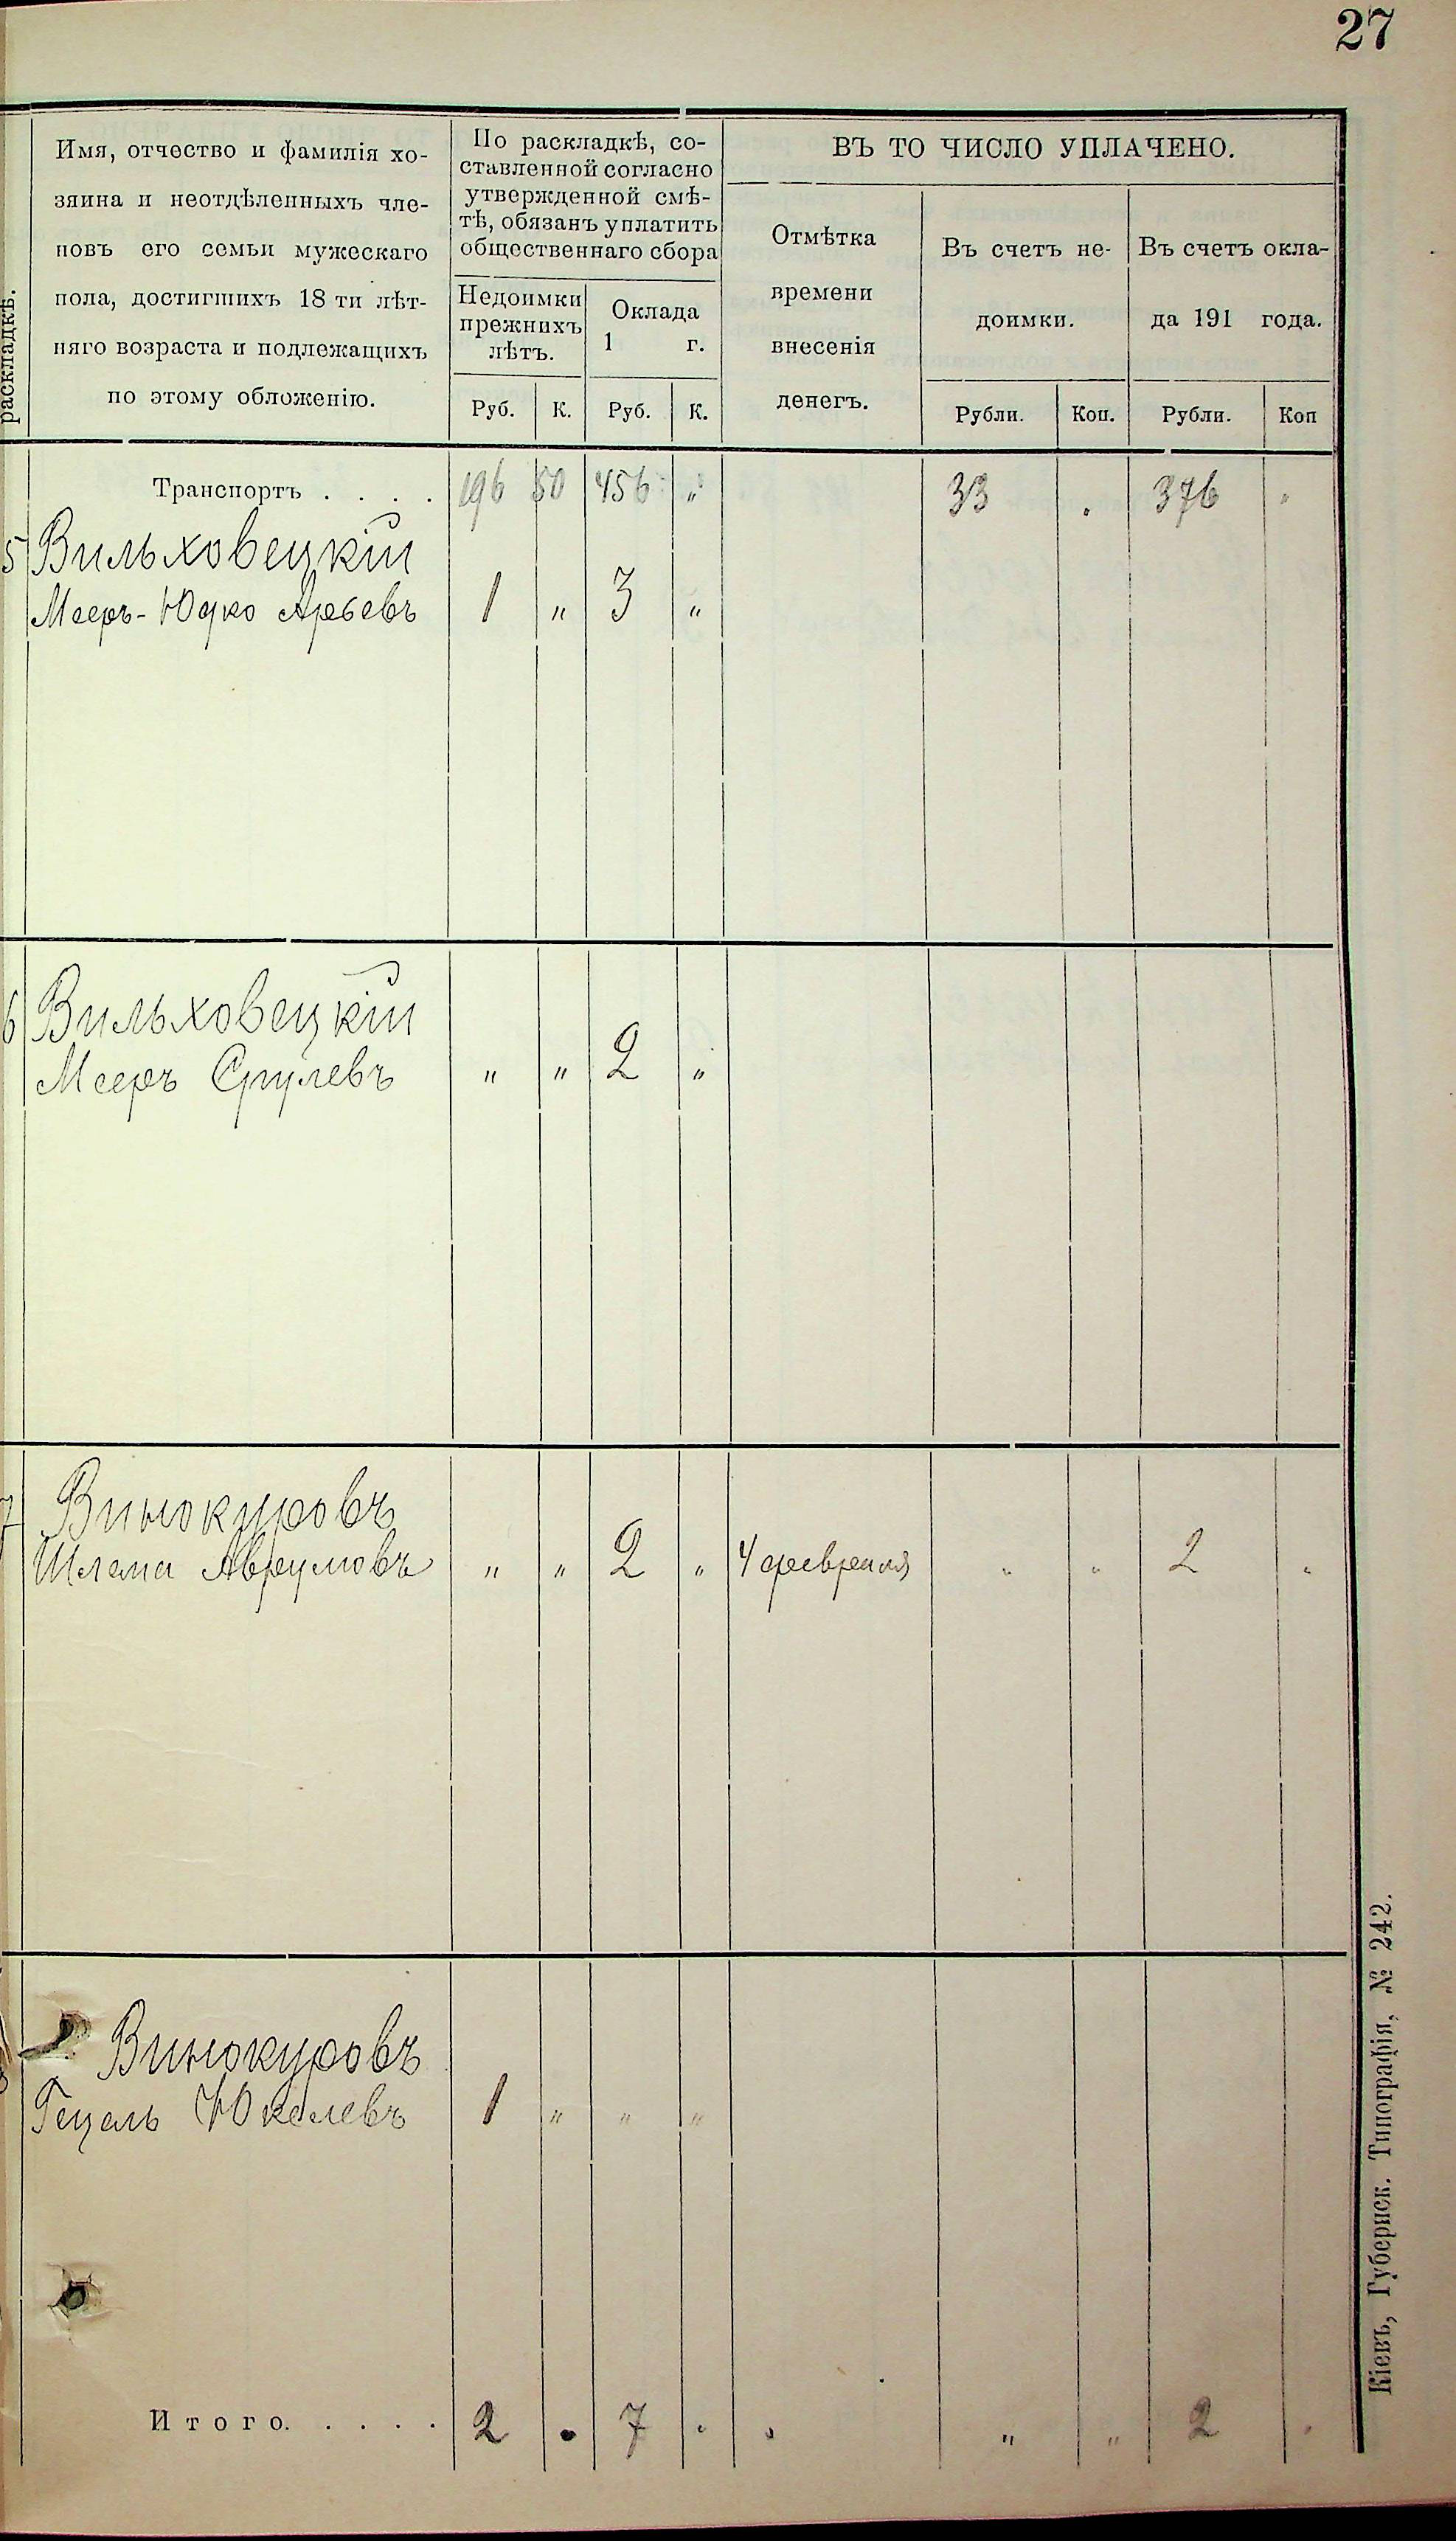 27
раскладкѣ.
Имя, отчество и фамилія хо-
зяина и неотдѣленныхъ чле-
новъ его семьи мужескаго
пола, достигшихъ 18 ти лѣт-
няго возраста и подлежащихъ
по этому обложенію.
По раскладкѣ, со-
ставленной согласно
утвержденной смѣ-
тѣ, обязанъ уплатить
общественнаго сбора
Недоимки
прежнихъ
лѣтъ.
Оклада
1 г.
Руб. К. Руб. К.
ВЪ ТО ЧИСЛО УПЛАЧЕНО.
Отмѣтка
времени
внесенія
денегъ.
Въ счетъ не-
доимки.
Въ счетъ окла-
да 191 года.
Рубли. Коп. Рубли. Коп
Транспортъ . . . . 196 50 456 „ 33 . 376 „
5 Вильховецкій
Мееръ-Юдко Арьевъ 1 „ 3 „
6 Вильховецкій
Мееръ Срулевъ „ „ 2 „
7 Винокуровъ
Шлема Аврумовъ „ „ 2 „ 4 февраля „ „ 2 „
Винокуровъ
Гецель Юкелевъ 1 „ „ „
Итого. . . . . 2 . 7 . . „ „ 2 .
Кіевъ, Губернск. Типографія, № 242.